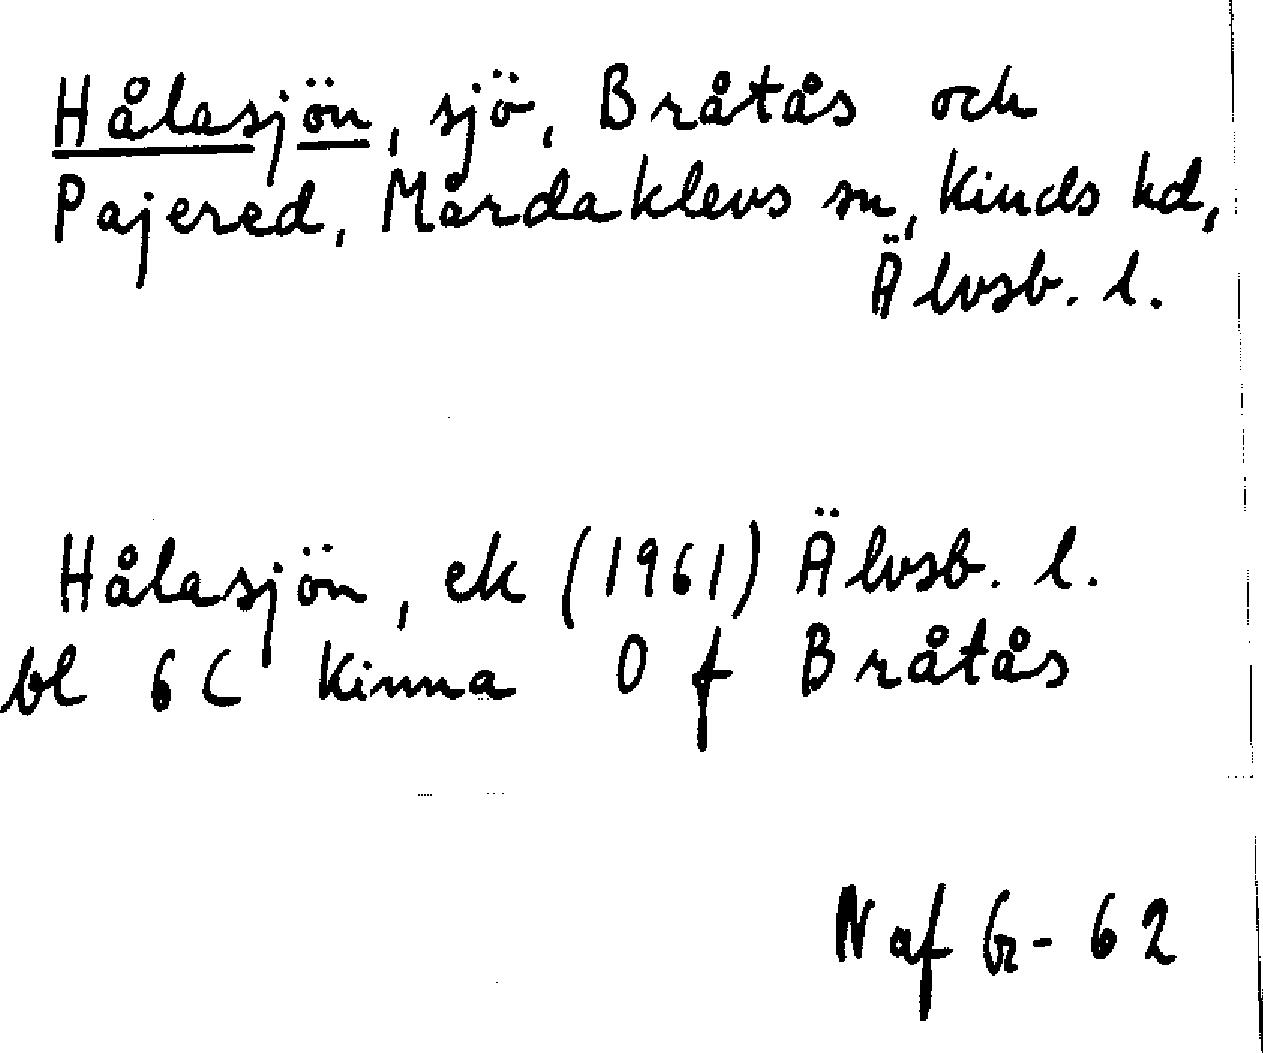 Hålasjön, sjö, Bråtås och
Pajered, Mårdaklevs sn, Kinds hd,
Älvsb. l.
Hålasjön, ek (1961) Älvsb. l.
bl 6 C Kinna O f Bråtås
N af Gr- 62